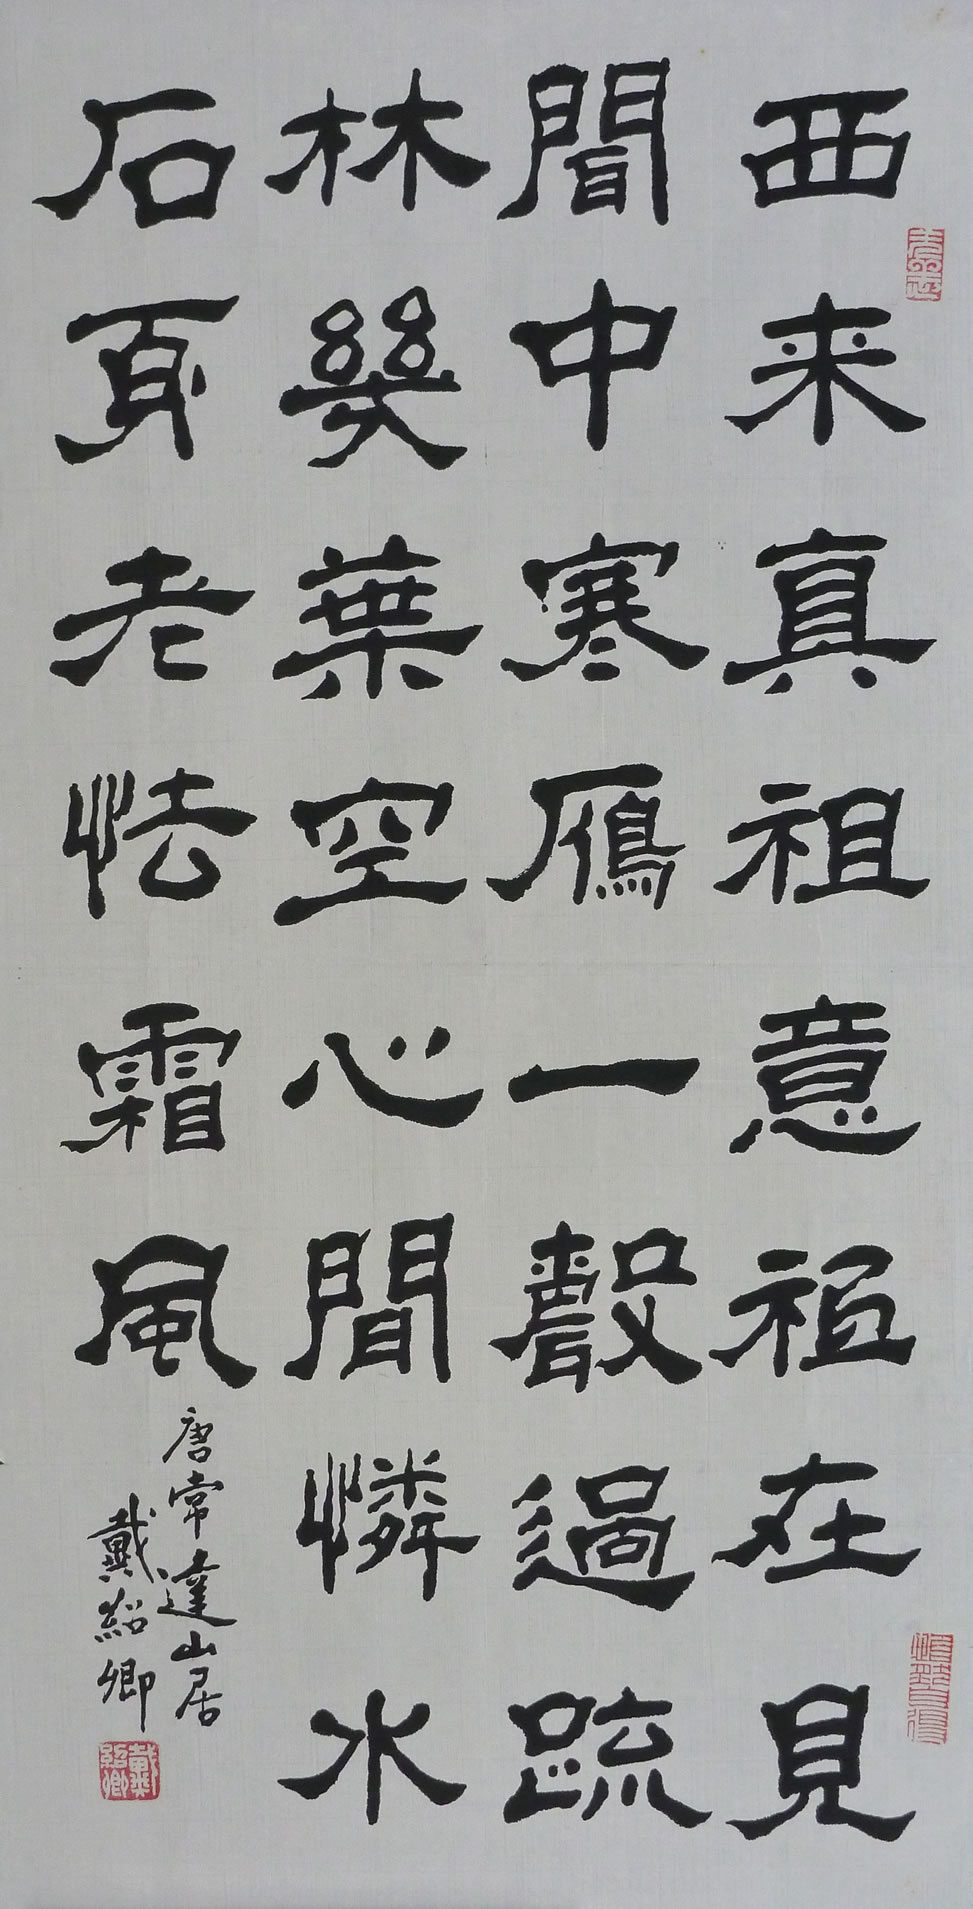 西来真祖意祗在見
聞中寒鴈一聲過疏
林幾葉空心閒憐水
石身老怯霜風
唐常達山居
戴紹卿
戴紹卿